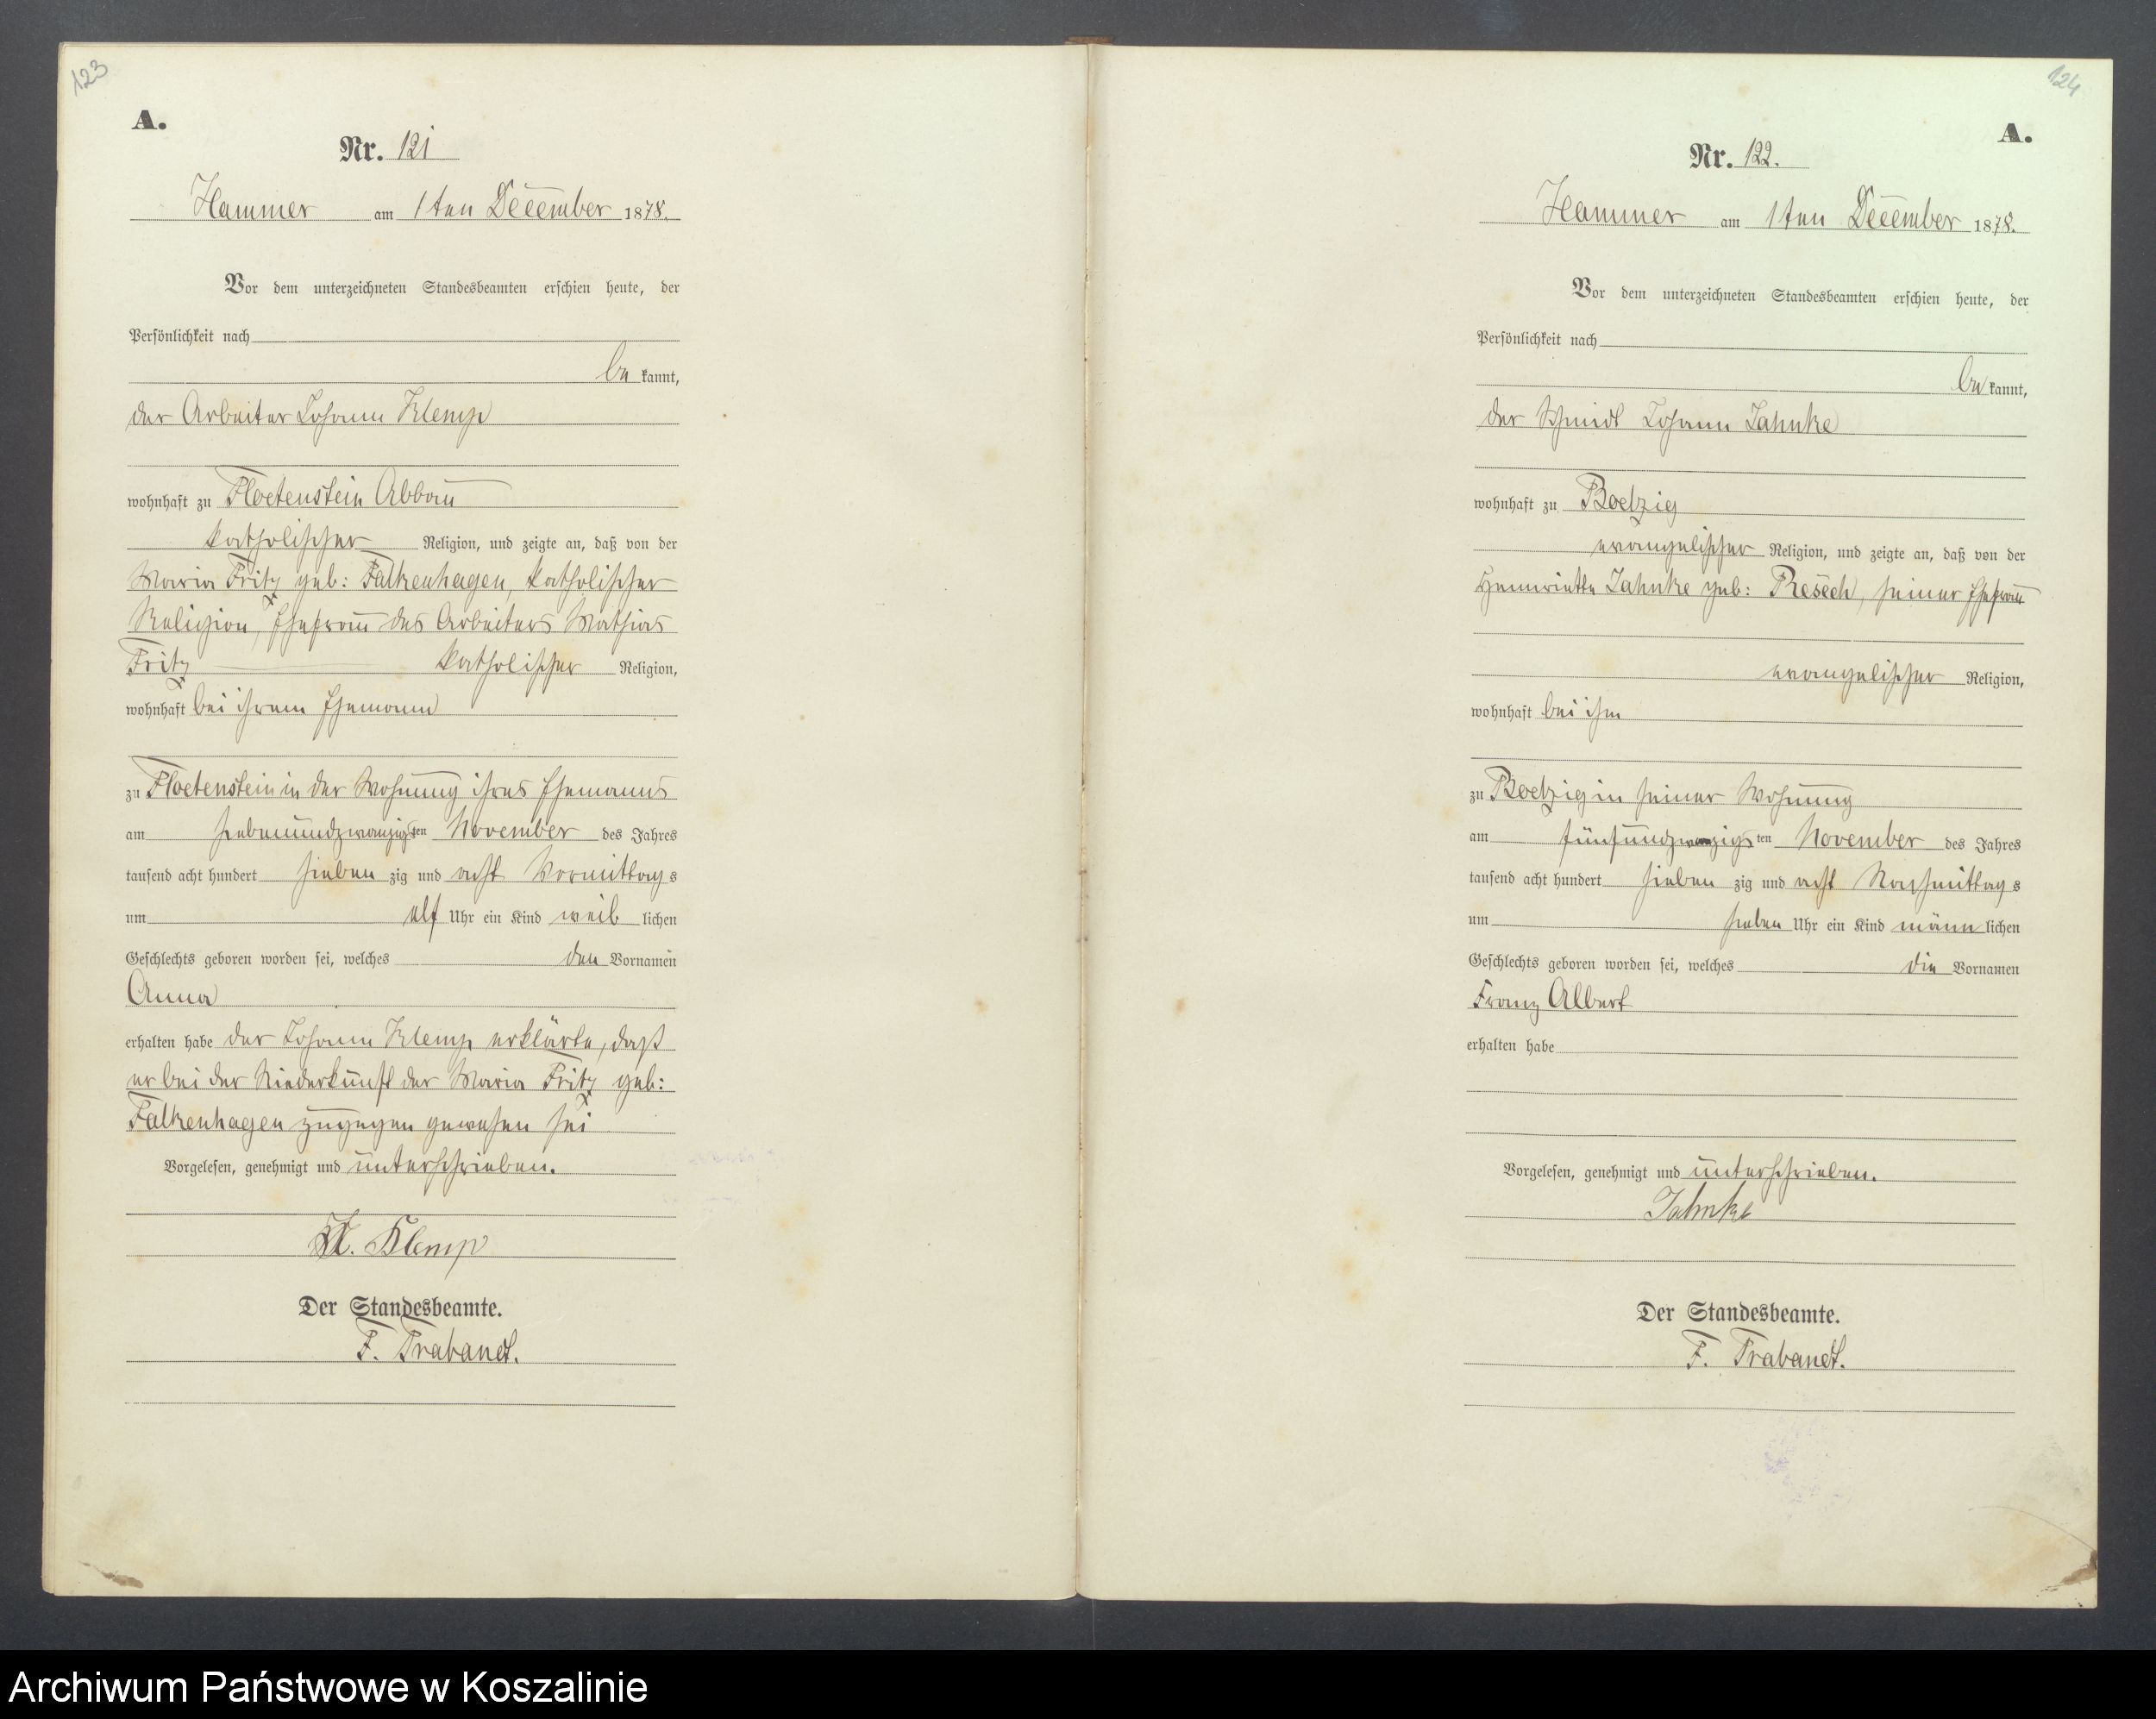 123
A.
Nr. 121
Hammer am 1ten December 1878.
Vor dem unterzeichneten Standesbeamten erschien heute, der
Persönlichkeit nach
be kannt,
der Arbeiter Johann Klemp
wohnhaft zu Floetenstein Abbau
katholischer Religion, und zeigte an, daß von der
Maria Fritz geb: Falkenhagen, katholischer
Religion, Ehefrau des Arbeiters Mathias
Fritz katholischer Religion,
wohnhaft bei ihrem Ehemann
zu Floetenstein in der Wohnung ihres Ehemanns
am siebenundzwanzigsten November des Jahres
tausend acht hundert sieben zig und acht Vormittags
um elf Uhr ein Kind weib lichen
Geschlechts geboren worden sei, welches den Vornamen
Anna
erhalten habe der Johann Klemp erklärte, daß
er bei der Niederkunft der Maria Fritz geb:
Falkenhagen zugegen gewesen sei
Vorgelesen, genehmigt und unterschrieben.
Klemp
Der Standesbeamte.
F. Trabandt.
124
A.
Nr. 122.
Hammer am 1ten December 1878.
Vor dem unterzeichneten Standesbeamten erschien heute, der
Persönlichkeit nach
be kannt,
der Schmidt Johann Jahnke
wohnhaft zu Boelzig
evangelischer Religion, und zeigte an, daß von der
Henriette Jahnke geb: Resech, seiner Ehefrau
evangelischer Religion,
wohnhaft bei ihm
zu Boelzig in seiner Wohnung
am fünfundzwanzigs ten November des Jahres
tausend acht hundert sieben zig und acht Nachmittags
um sieben Uhr ein Kind männ lichen
Geschlechts geboren worden sei, welches die Vornamen
Franz Albert
erhalten habe
Vorgelesen, genehmigt und unterschrieben.
Jahnke
Der Standesbeamte.
F. Trabandt.
Archiwum Państwowe w Koszalinie